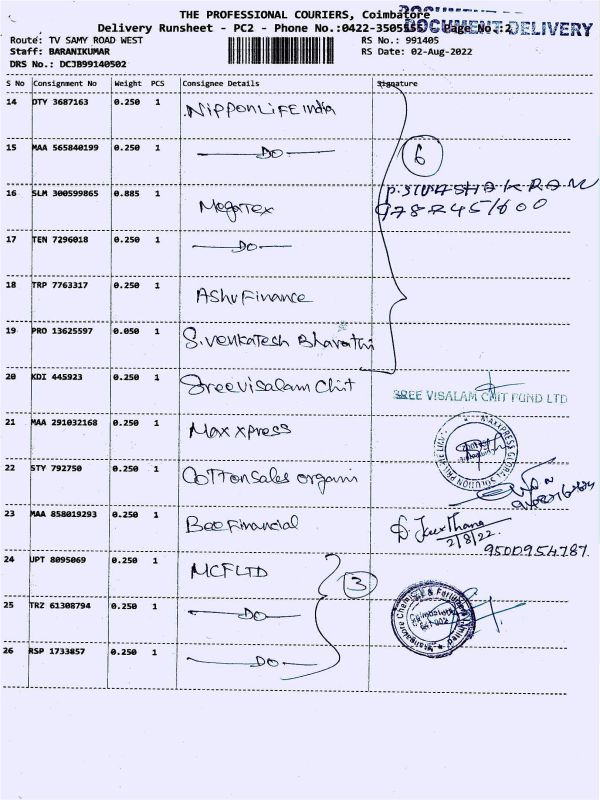 THE PROFESSIONAL COURIERS, Coimbatore
DOCUMENT DELIVERY
Delivery Runsheet - PC2 - Phone No.:0422-3505555 Page No.:2
Route: TV SAMY ROAD WEST
RS No.: 991405
Staff: BARANIKUMAR
RS Date: 02-Aug-2022
DRS No.: DCJB99140502
S No Consignment No Weight PCS Consignee Details Signature
14 DTY 3687163 0.250 1 NIPPON LIFE india
15 MAA 565840199 0.250 1 DO 6
16 SLM 300599865 0.885 1 Megatex
17 TEN 7296018 0.250 1 DO
18 TRP 7763317 0.250 1 Ashv Finance
19 PRO 13625597 0.050 1 S. Venkatesh Bharathi
20 KDI 445923 0.250 1 Sree visalam Chit
SREE VISALAM CHIT FUND LTD
21 MAA 291032168 0.250 1 Max xpress
MAXXPRESS GLOBAL SOLUTION PRIVATE
22 STY 792750 0.250 1 Cotton sales organi
23 MAA 858019293 0.250 1 Bee Financial
2/8/22.
9500954787.
24 UPT 8095069 0.250 1 MCF LTD
3
25 TRZ 61308794 0.250 1 DO
Mangalore Chemicals & Fertilizers Limited
Coimbatore
26 RSP 1733857 0.250 1 DO